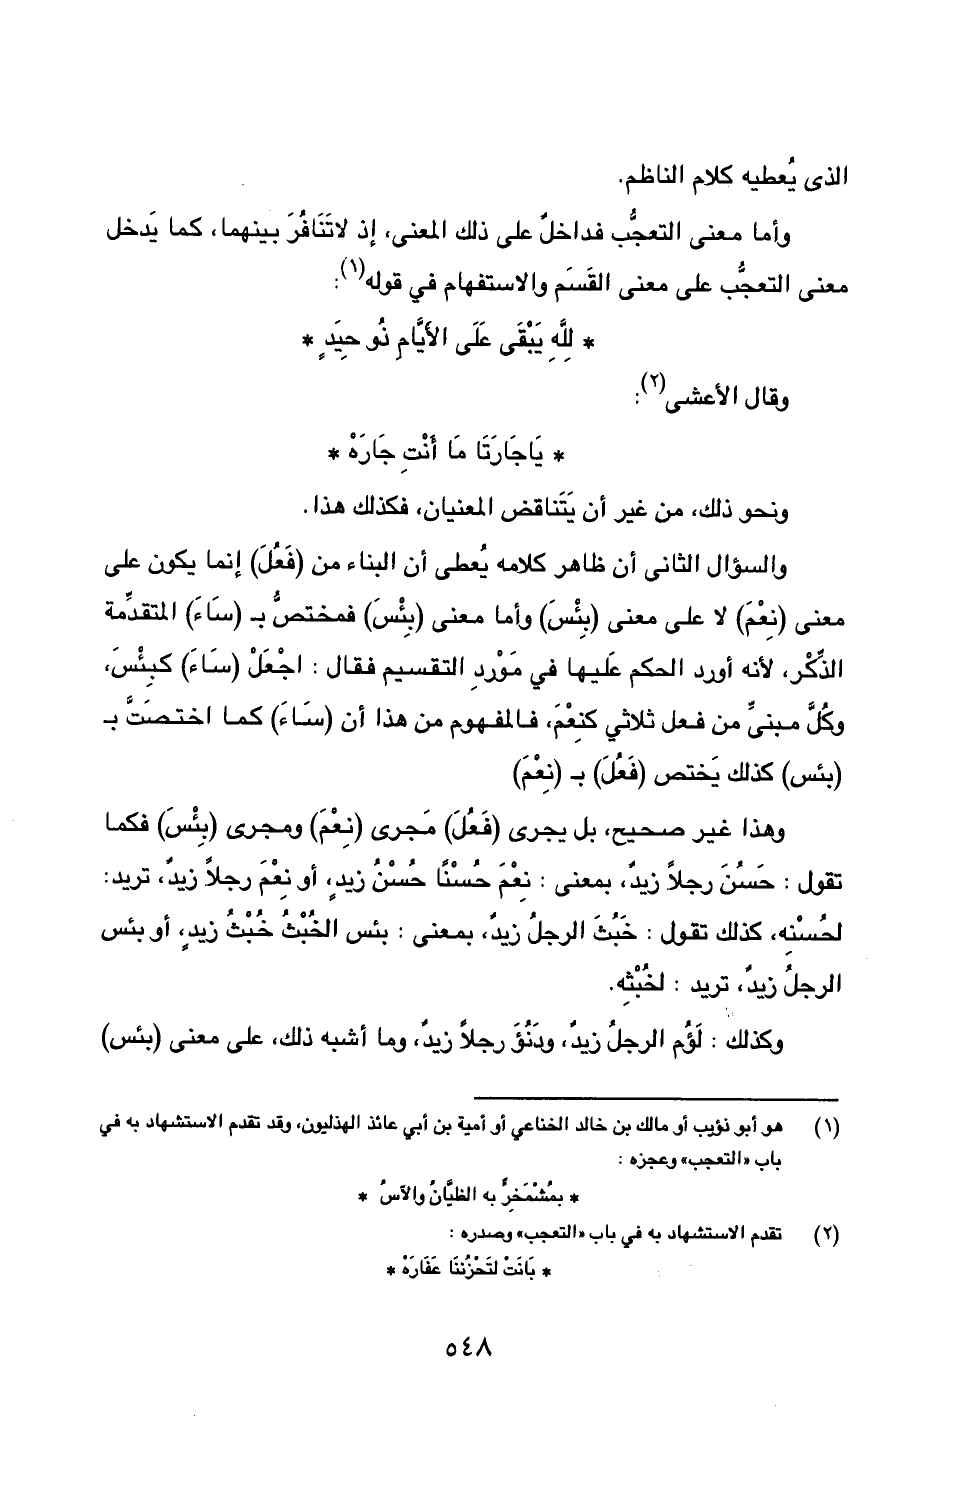 الذى يُعطيه كلام الناظم.
وأما معنى التعجُّب فداخلٌ على ذلك المعنى، إذ لاتَنَافُرَ بينهما، كما يَدخل
معنى التعجُّب على معنى القَسَم والاستفهام في قوله(١):
* لِلَّهِ يَبْقَى عَلَى الأيَّامِ ذُو حِيَدٍ *
وقال الأعشى(٢):
* يَاجَارَتَا مَا أَنْتِ جَارَهْ *
ونحو ذلك، من غير أن يَتَناقض المعنيان، فكذلك هذا.
والسؤال الثانى أن ظاهر كلامه يُعطى أن البناء من (فَعُلَ) إنما يكون على
معنى (نِعْمَ) لا على معنى (بِئْسَ) وأما معنى (بِئْسَ) فمختصٌّ بـ (سَاءَ) المتقدِّمة
الذِّكْر، لأنه أورد الحكم عَليها في مَوْرِد التقسيم فقال : اجْعَلْ (سَاءَ) كبِئْسَ،
وكُلَّ مبنىٍّ من فعل ثلاثي كنِعْمَ، فالمفهوم من هذا أن (سَاءَ) كما اختصَتَّ بـ
(بئس) كذلك يَختص (فَعُلَ) بـ (نِعْمَ)
وهذا غير صحيح، بل يجرى (فَعُلَ) مَجرى (نِعْمَ) ومجرى (بِئْسَ) فكما
تقول : حَسُنَ رجلاً زيدٌ، بمعنى : نِعْمَ حُسْنًا حُسْنُ زيدٍ، أو نِعْمَ رجلاً زيدٌ، تريد:
لحُسْنِه، كذلك تقول : خَبُثَ الرجلُ زيدٌ، بمعنى : بئس الخُبْثُ خُبْثُ زيدٍ، أو بئس
الرجلُ زيدٌ، تريد : لخُبْثِه.
وكذلك : لَؤُم الرجلُ زيدٌ، ودَنُؤَ رجلاً زيدٌ، وما أشبه ذلك، على معنى (بئس)
(١) هو أبو ذؤيب أو مالك بن خالد الخناعي أو أمية بن أبي عائذ الهذليون، وقد تقدم الاستشهاد به في
باب «التعجب» وعجزه :
* بمُشْمَخِرٍّ به الظيَّانُ والآسُ *
(٢) تقدم الاستشهاد به في باب «التعجب» وصدره :
* بَانَتْ لتَحْزُننَا عَفَارَهْ *
٥٤٨